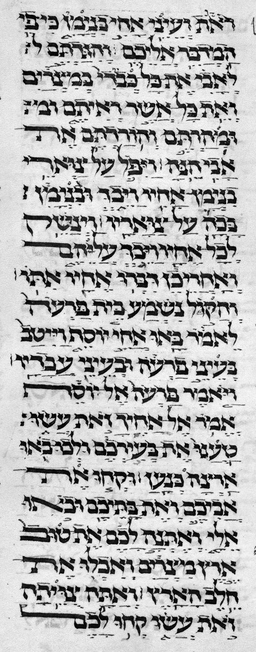 ראות ועיני אחי בנימן כי פי
המדבר אליכם והגדתם
לאבי את כל כבודי במצרים
ואת כל אשר ראיתם
ומהרתם והורדתם את
אבי הנה ויפל על צוארי
בנימן אחיו ויבך ובנימן
בכה על צואריו וינשק
לכל אחיו ויבך עליהם
ואחרי כן דברו אחיו אתו
והקול נשמע בית פרעה
לאמר באו אחי יוסף וייטב
בעיני פרעה ובעיני עבדיו
ויאמר פרעה אל יוסף
אמר אל אחיך זאת עשו
טענו את בעירכם ולכו באו
ארצה כנען וקחו את
אביכם ואת בתיכם ובאו
אלי ואתנה לכם את טוב
ארץ מצרים ואכלו את
חלב הארץ ואתה צויתה
זאת עשו קחו לכם